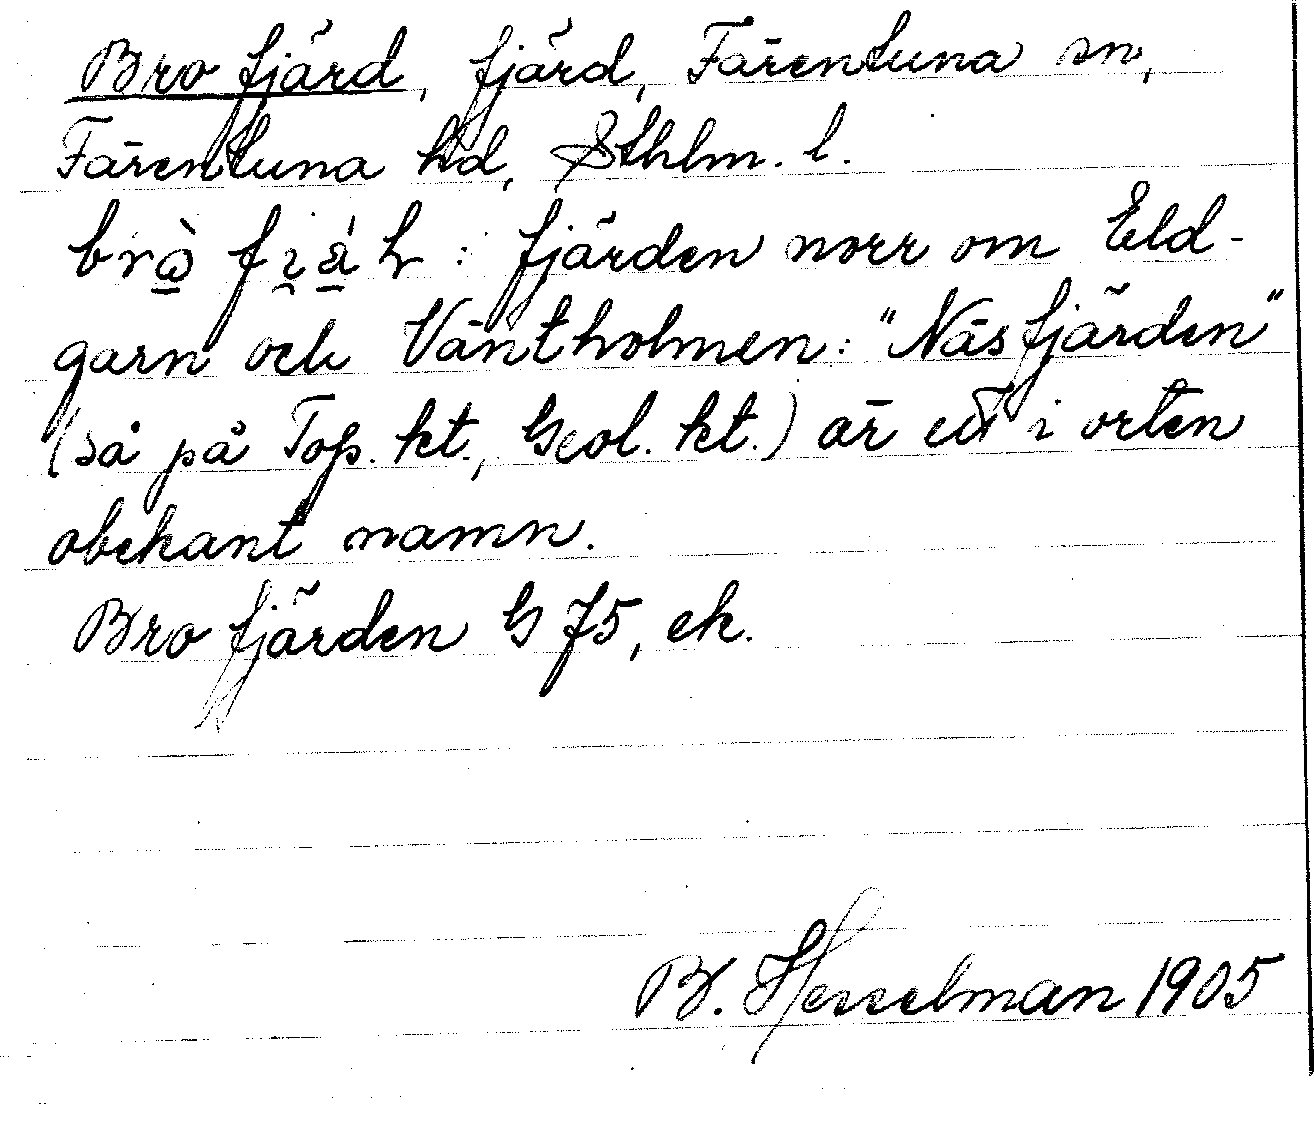 Bro fjärd, fjärd, Färentuna sn,
Färentuna hd, Sthlm. l.
fjärden norr om Eld-
garn och Väntholmen: "Näsfjärden"
(så på Top. kt., Geol. kt.) är ett i orten
obekant namn.
Brofjärden G 75, ek.
B. Hesselman 1905